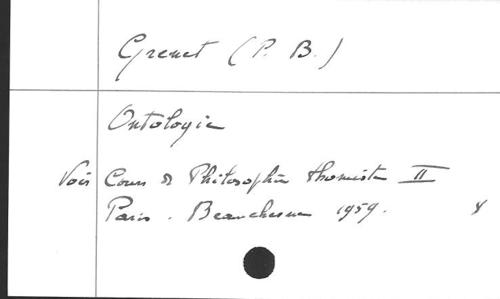 Grenet (P. B.)
Ontologie
Voir Cours de Philosophie thomiste II
Paris. Beauchesne 1959.